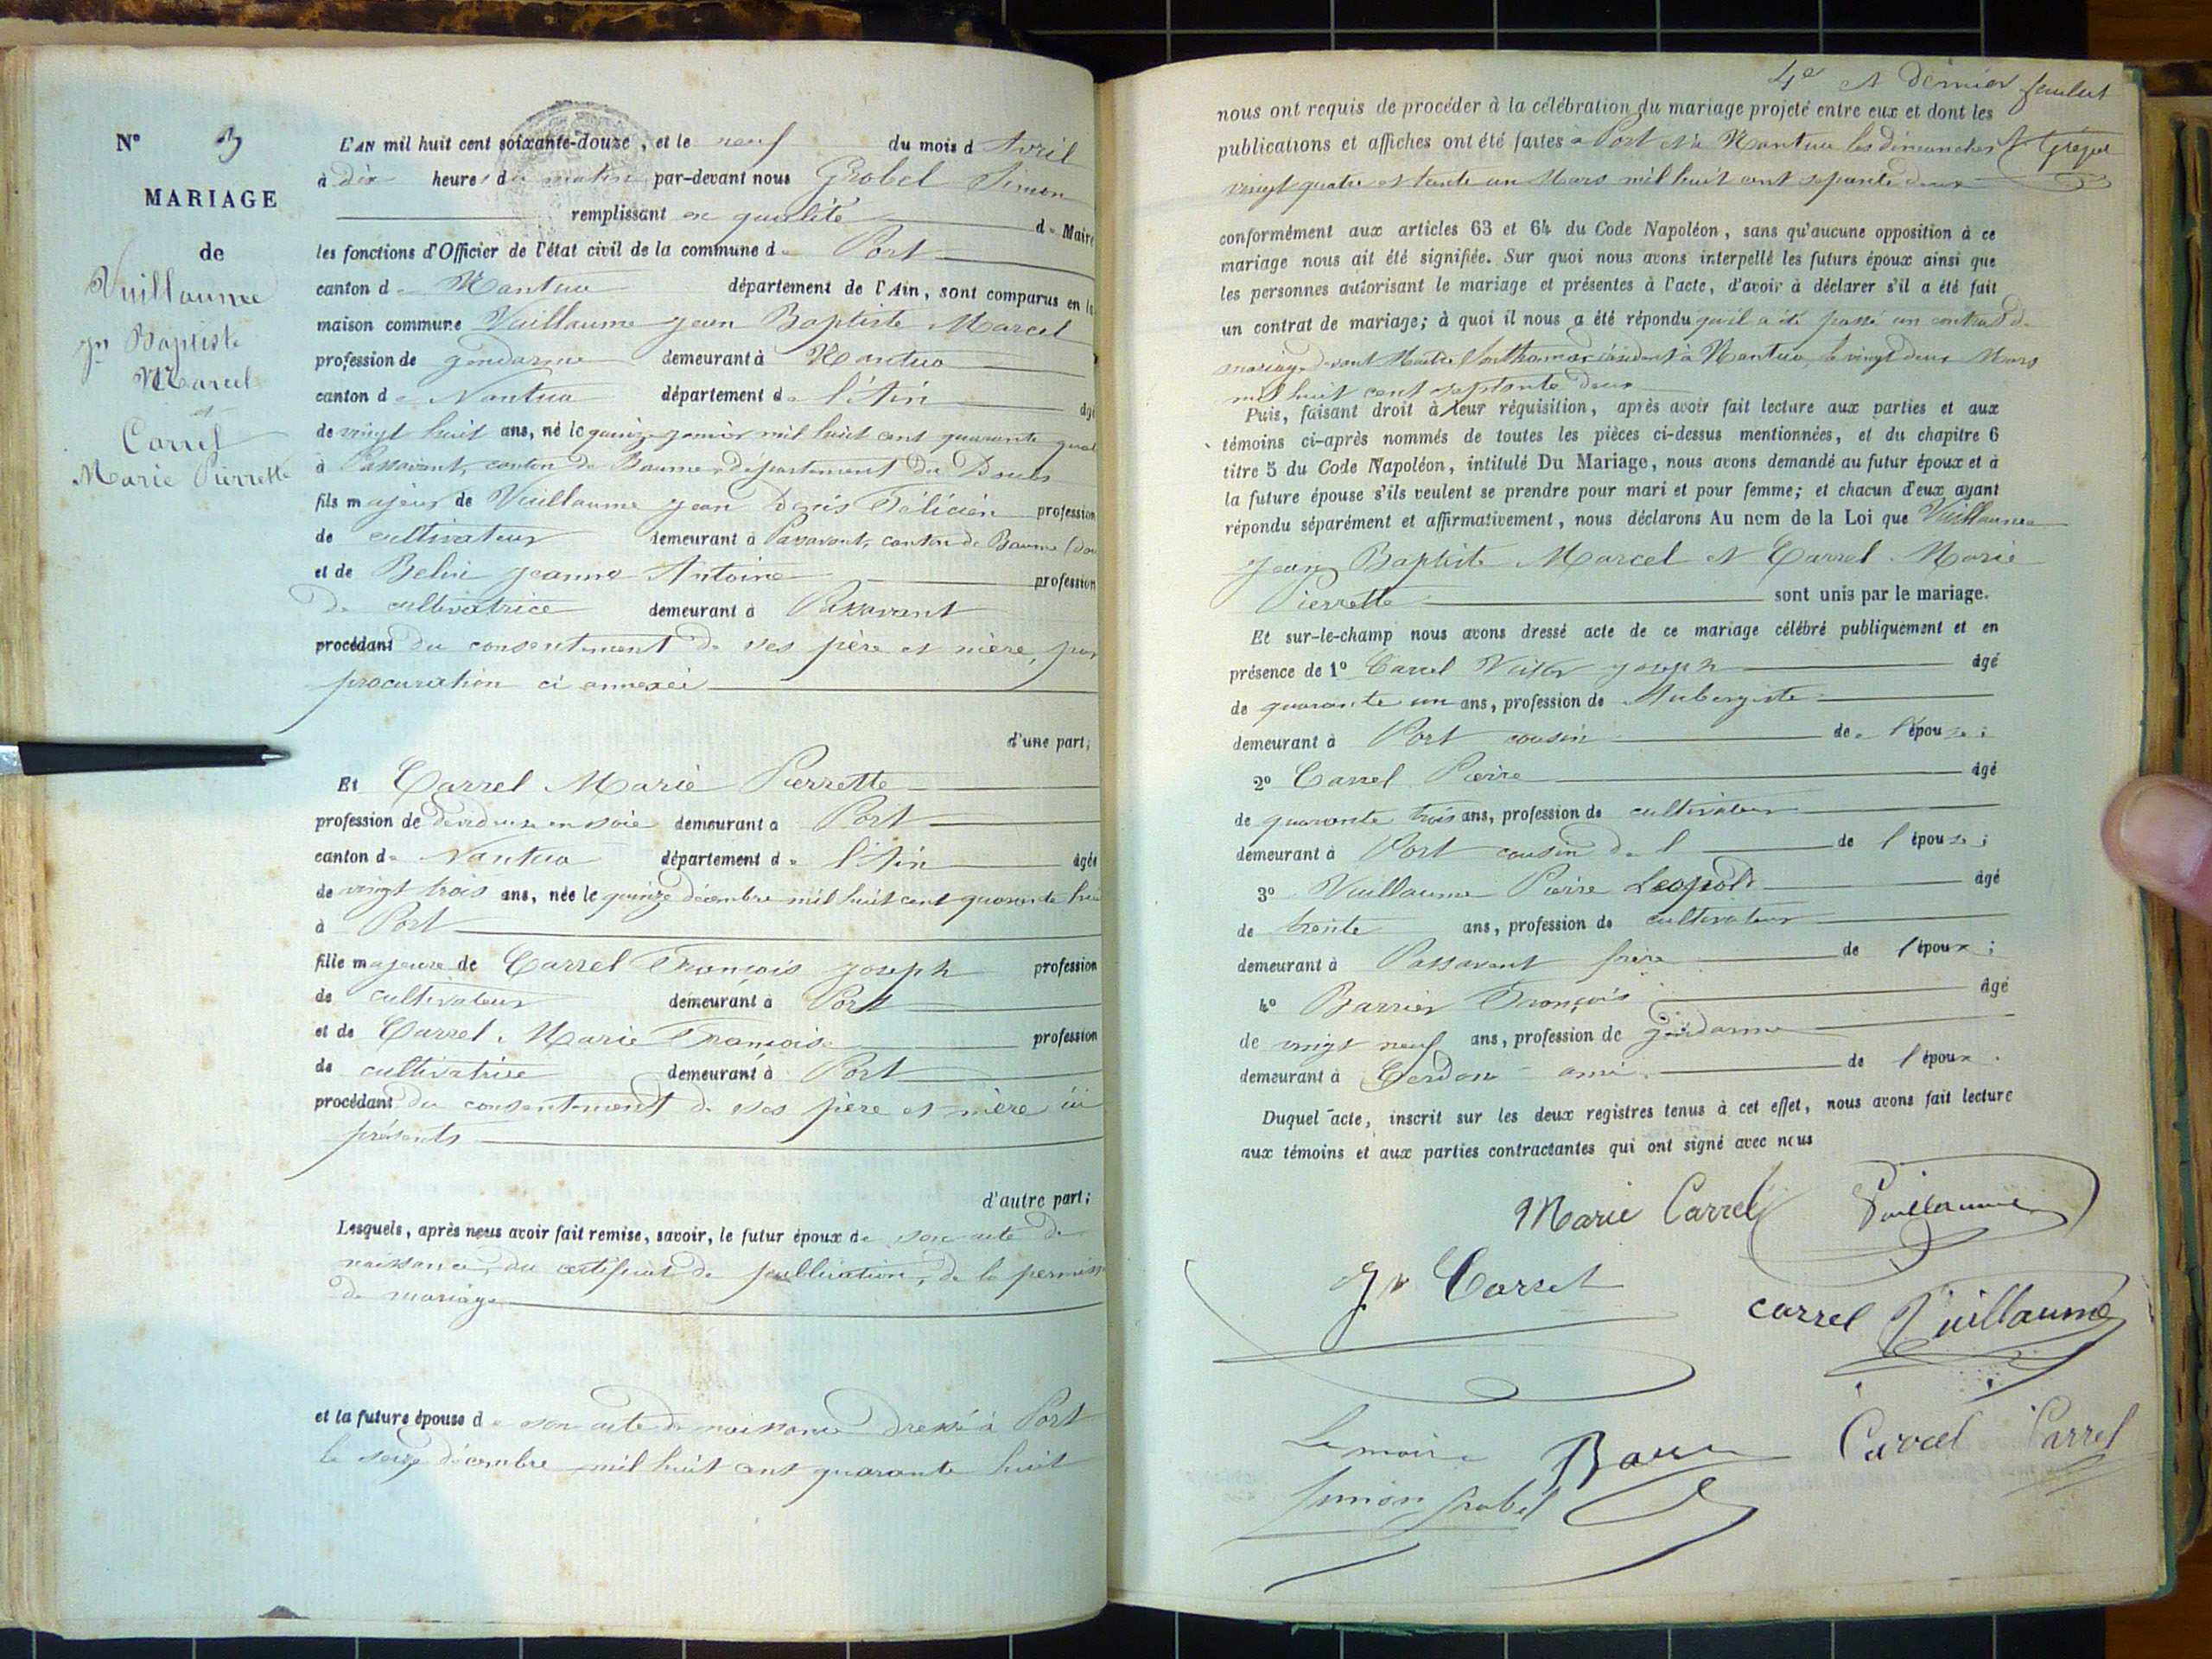 N° 3
MARIAGE
de
Vuillaume
Jn Baptiste
Marcel
et
Carrel
Marie Pierrette
L'AN mil huit cent soixante-douze, et le neuf du mois d Avril
à dix heures du matin par-devant nous Grobel Simon
remplissant en qualité de Maire
les fonctions d'Officier de l'état civil de la commune de Port
canton de Nantua département de l'Ain, sont comparus en la
maison commune Vuillaume Jean Baptiste Marcel
profession de gendarme demeurant à Nantua
canton de Nantua département de l'Ain âgé
de vingt huit ans, né le quinze janvier mil huit cent quarante quat
à Passavant, canton de Baume, département du Doubs
fils majeur de Vuillaume Jean Denis Félicien profession
de cultivateur demeurant à Passavant, canton de Baume (Dou
et de Jeanne Antoine profession
de cultivatrice demeurant à Passavant
procédant du consentement de ses père et mère, par
procuration ci annexée
d'une part;
Et Carrel Marie Pierrette
profession de dévideuse en soie demeurant à Port
canton de Nantua département de l'Ain âgée
de vingt trois ans, née le quinze décembre mil huit cent quarante hui
à Port
fille majeure de Carrel François Joseph profession
de cultivateur demeurant à Port
et de Carrel Marie Françoise profession
de cultivatrice demeurant à Port
procédant du consentement de ses père et mère ici
présents
d'autre part;
Lesquels, après nous avoir fait remise, savoir, le futur époux de son acte de
naissance, du certificat de publication, de la permiss
de mariage
et la future épouse de son acte de naissance dressé à Port
le seize décembre mil huit cent quarante huit
4e et dernier feuillet
nous ont requis de procéder à la célébration du mariage projeté entre eux et dont les
publications et affiches ont été faites à Port et à Nantua les dimanches
vingt quatre et trente un Mars mil huit cent septante deux
conformément aux articles 63 et 64 du Code Napoléon, sans qu'aucune opposition à ce
mariage nous ait été signifiée. Sur quoi nous avons interpellé les futurs époux ainsi que
les personnes autorisant le mariage et présentes à l'acte, d'avoir à déclarer s'il a été fait
un contrat de mariage; à quoi il nous a été répondu qu'il a été passé un contrat de
mariage devant Maître résidant à Nantua, le vingt deux Mars
mil huit cent septante deux
Puis, faisant droit à leur réquisition, après avoir fait lecture aux parties et aux
témoins ci-après nommés de toutes les pièces ci-dessus mentionnées, et du chapitre 6
titre 5 du Code Napoléon, intitulé Du Mariage, nous avons demandé au futur époux et à
la future épouse s'ils veulent se prendre pour mari et pour femme; et chacun d'eux ayant
répondu séparément et affirmativement, nous déclarons Au nom de la Loi que Vuillaume
Jean Baptiste Marcel et Carrel Marie
Pierrette sont unis par le mariage.
Et sur-le-champ nous avons dressé acte de ce mariage célébré publiquement et en
présence de 1° Carrel Victor Joseph âgé
de quarante un ans, profession de Aubergiste
demeurant à Port cousin de l'épouse;
2° Carrel Pierre âgé
de quarante trois ans, profession de cultivateur
demeurant à Port cousin de l de l'épouse;
3° Vuillaume Pierre Leopold âgé
de trente ans, profession de cultivateur
demeurant à Passavant frère de l'époux;
4° Barrier François âgé
de vingt neuf ans, profession de gendarme
demeurant à Cerdon ami de l'époux.
Duquel acte, inscrit sur les deux registres tenus à cet effet, nous avons fait lecture
aux témoins et aux parties contractantes qui ont signé avec nous
Marie Carrel Vuillaume
Jh Carrel
carrel Vuillaume
Le maire Carrel Carrel
Simon Grobel